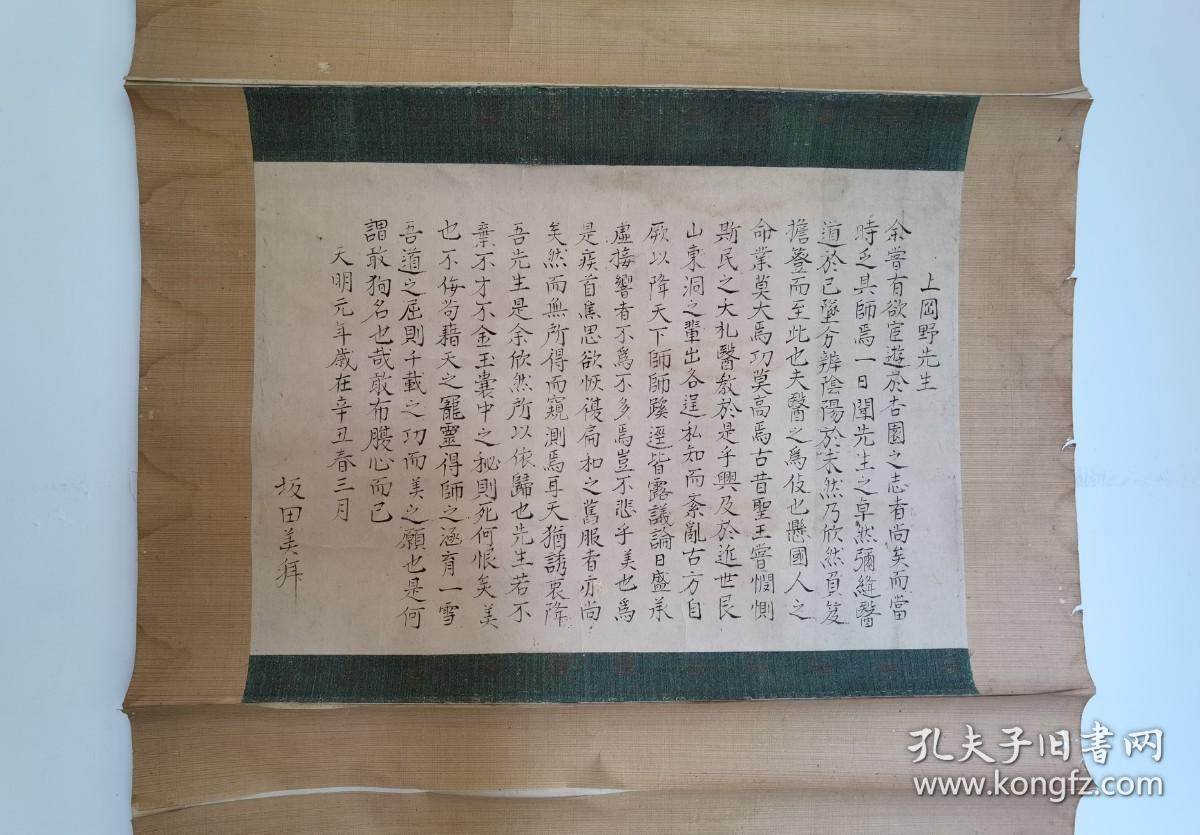 上岡野先生
余嘗有欲宦遊於杏園之志者尚矣而當
時乏其師焉一日聞先生之卓然彌縫醫
道於已墜分辨陰陽於未然乃欣然負笈
擔簦而至此也夫醫之為伎也懸國人之
命業莫大焉功莫高焉古昔聖王嘗憫惻
斯民之夭札醫教於是乎興及於近世艮
山東洞之輩出各逞私知而紊亂古方自
厥以降天下師師蹊逕皆露議論日盛承
虛接響者不為不多焉豈不悲乎美也為
是疾首焦思欲恢復扁和之舊服者亦尚
矣然而無所得而窺測焉耳天猶誘衷降
吾先生是余欣然所以依歸也先生若不
棄不才不金玉囊中之秘則死何恨矣美
也不侮苟藉天之寵靈得師之涵育一雪
吾道之屈則千載之功而美之願也是何
謂敢狥名也哉敢布腹心而已
天明元年歲在辛丑春三月
坂田美拜
孔夫子旧书网
www.kongfz.com